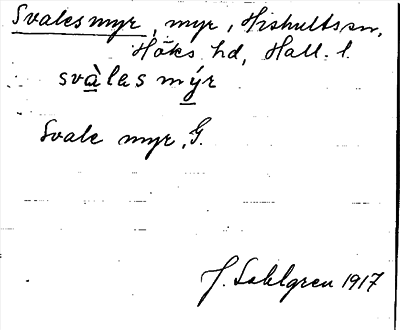 Svalesmyr, myr, Hishultssn,
Höks hd, Hall. l.
svàles mýr
Svale myr, G.
J. Sahlgren 1917